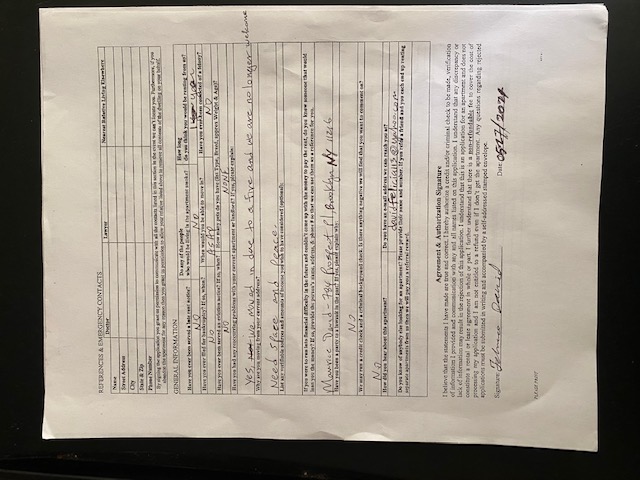 REFERENCES & EMERGENCY CONTACTS
Doctor Lawyer Nearest Relative Living Elsewhere
Name
Street Address
City
State & Zip
Phone Number
By signing the application you grant us permission to communicate with all the contacts listed in this section in the event we can't locate you. Furthermore, if you
abandon the apartment for any reason then you grant us permission to allow your relative listed above to remove all contents of the dwelling on your behalf.
GENERAL INFORMATION
Have you ever been served a late rent notice? Do any of the people who would be living in the apartment smoke? How long do you think you would be renting from us?
NO NO 1 year
Have you ever filed for bankruptcy? If so, when? When would you be able to move in? Have you ever been convicted of a felony?
NO ASAP NO
Have you ever been served an eviction notice? If so, when? How many pets do you have (list Type, Breed, approx Weight & Age)?
NO NONE
Have you had any reoccurring problems with your current apartment or landlord? If yes, please explain:
Yes, we moved in due to a fire and we are no longer welcome
Why are you moving from your current address?
Need Space and Peace.
List any verifiable sources and amounts of income you wish to have considered (optional):
If you were to run into financial difficulty in the future and couldn't come up with the money to pay the rent, do you know someone that would
loan you the money? If so, provide the person's name, address, & phone # so that we can use them as a reference for you.
Maurice David - 784 Prospect Pl, Brooklyn NY 11216
Have you been a party to a lawsuit in the past? If yes, please explain why:
NO
We may run a credit check and a criminal background check. Is there anything negative we will find that you want to comment on?
NO
How did you hear about this apartment? Do you have an e-mail address we can reach you at?
davidfelician3@yahoo.com
Do you know of anybody else looking for an apartment? Please provide their name and number. If you refer a friend and you each end up renting
separate apartments from us then we will pay you a referral reward.
Agreement & Authorization Signature
I believe that the statements I have made are true and correct. I hereby authorize a credit and/or criminal check to be made, verification
of information I provided and communication with any and all names listed on this application. I understand that any discrepancy or
lack of information may result in the rejection of this application. I understand that this is an application for an apartment and does not
constitute a rental or lease agreement in whole or part. I further understand that there is a non-refundable fee to cover the cost of
processing my application and I am not entitled to a refund even if I don't get the apartment. Any questions regarding rejected
applications must be submitted in writing and accompanied by a self-addressed stamped envelope.
Signature: David Date: 05/27/2024
PLEASE PRINT